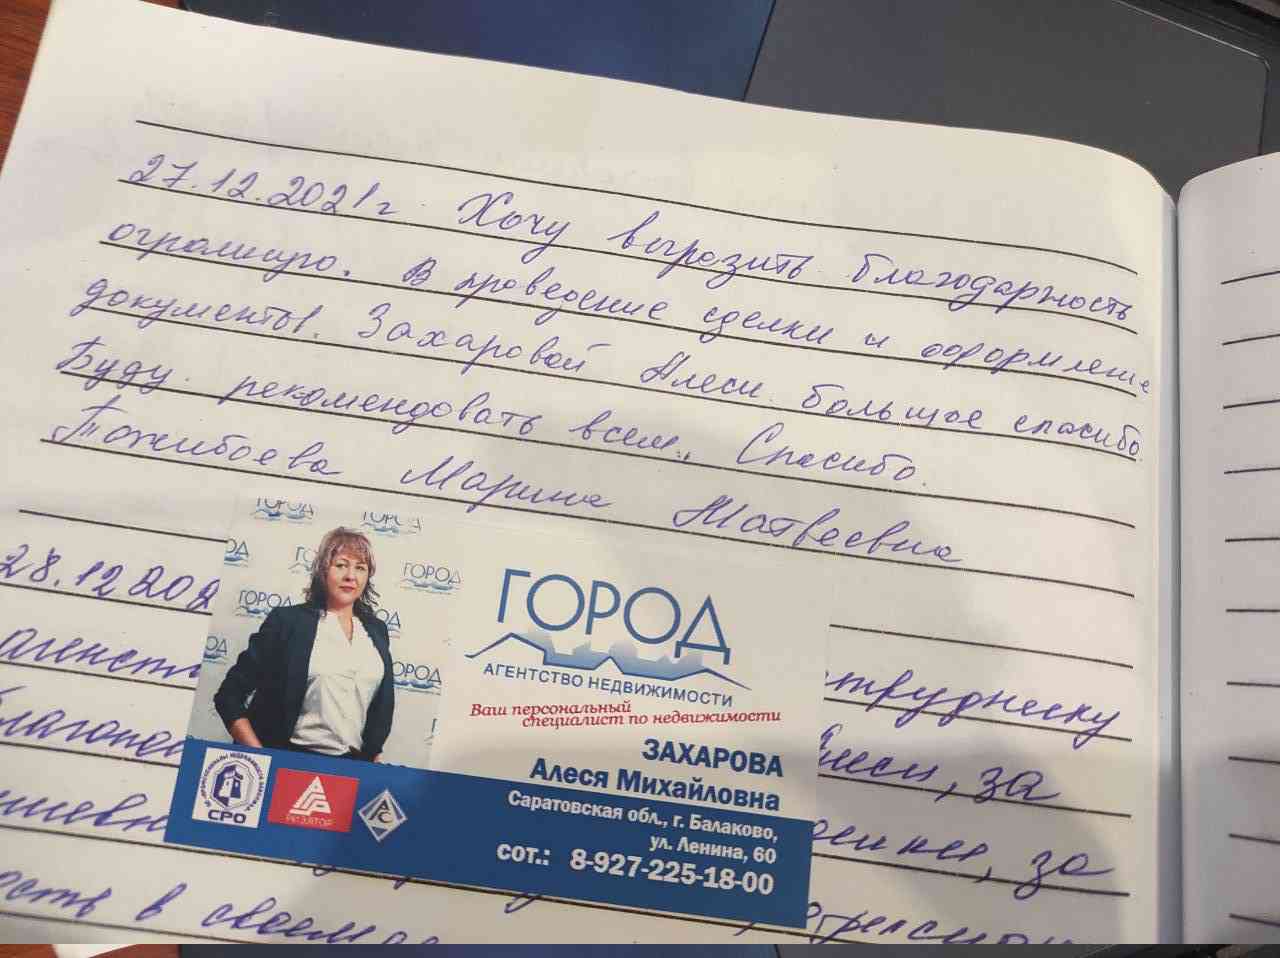 27.12.2021г Хочу выразить благодарность
огромную. В проведение сделки и оформление
документы. Захаровой Алеси большое спасибо.
Буду рекомендовать всем,, Спасибо.
Марина Матвеевна
28.12 202
агенст
за
за
в своем
ГОРОД
АГЕНТСТВО НЕДВИЖИМОСТИ
Ваш персональный
специалист по недвижимости
ЗАХАРОВА
Алеся Михайловна
Саратовская обл., г. Балаково,
ул. Ленина, 60
сот.: 8-927-225-18-00
СРО
РИЭЛТОР
ГОРОД
ГОРОД